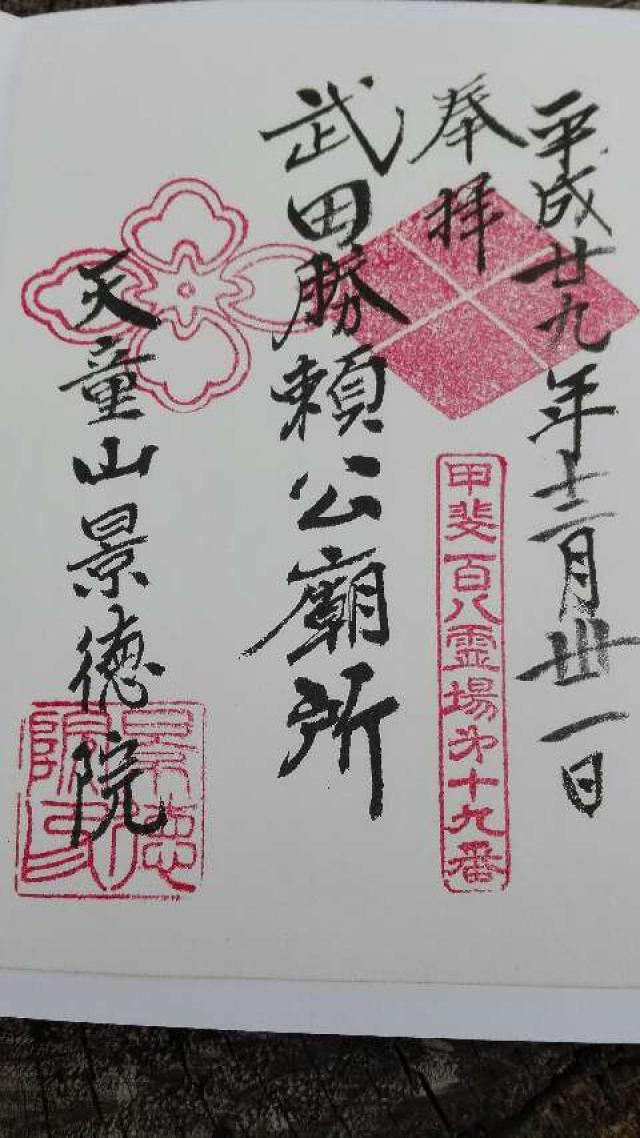 平成廿九年十二月卅一日
奉拝
甲斐百八霊場第十九番
武田勝頼公廟所
天童山景徳院
景徳院印